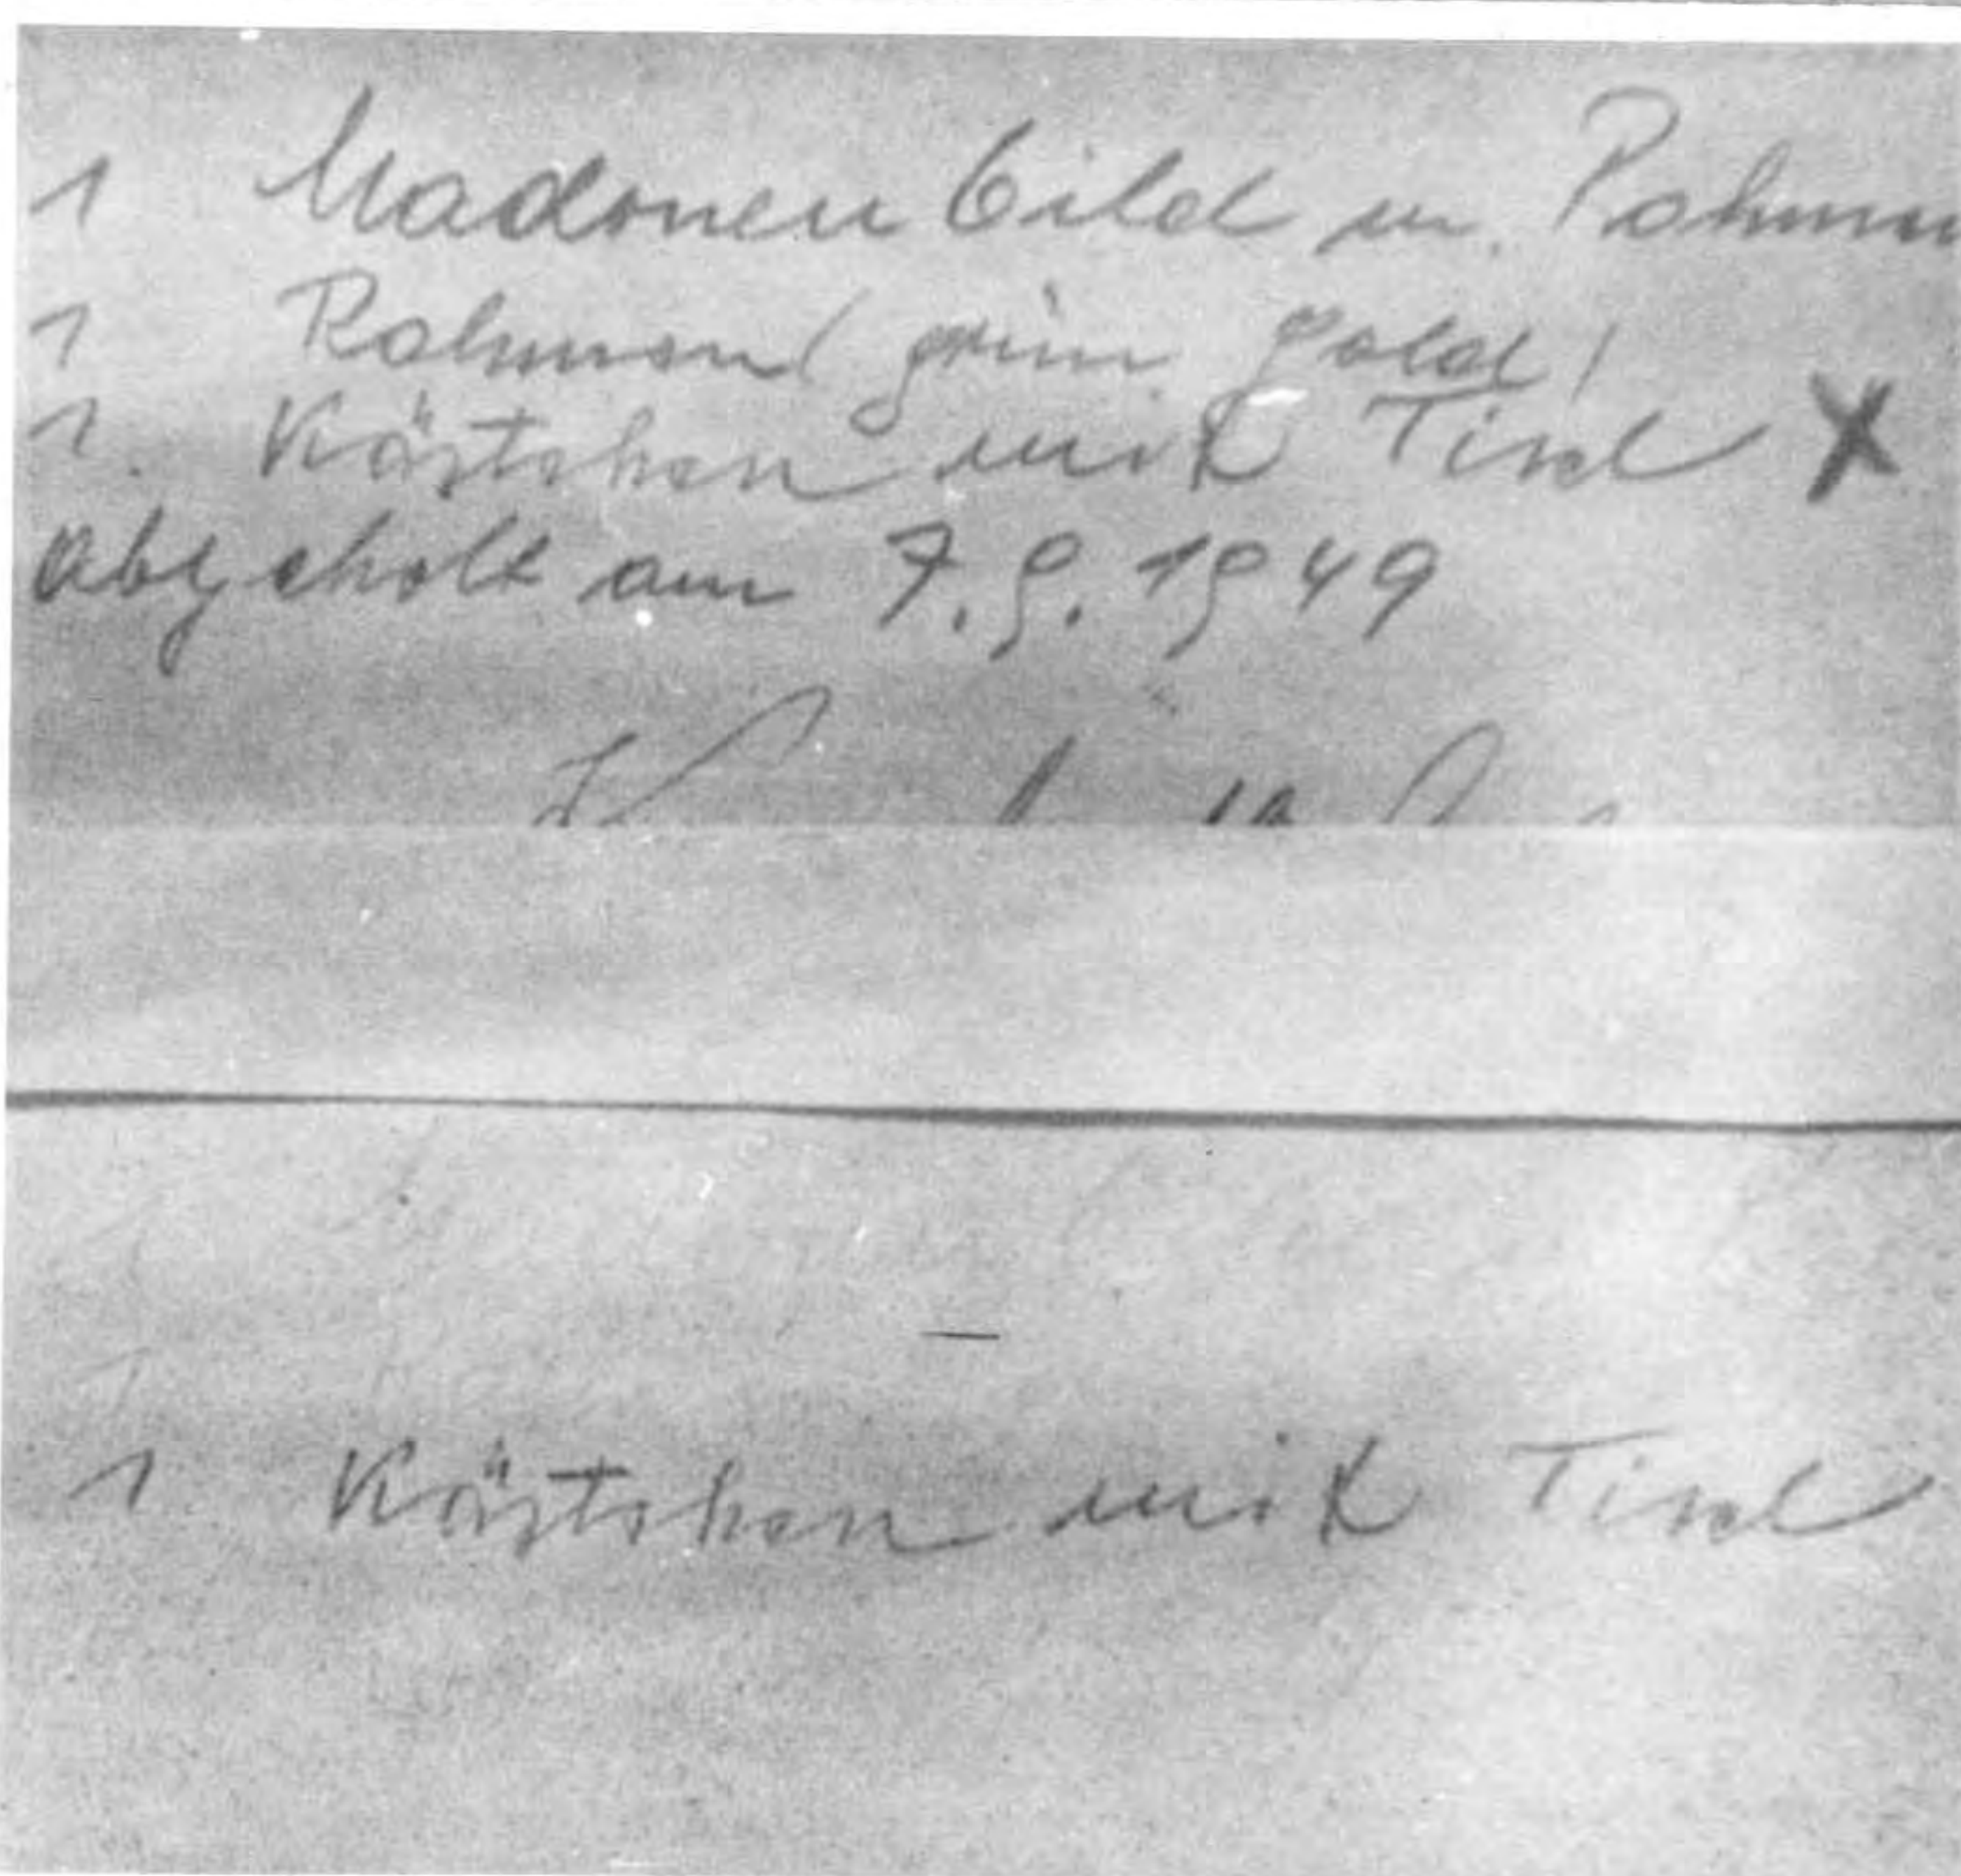 1 Madonenbild m. Rahmen
1 Rahmen (grün gold)
1. Kästchen mit Tisch X
Abgeholt am 7.9.1949
1 Kästchen mit Tisch